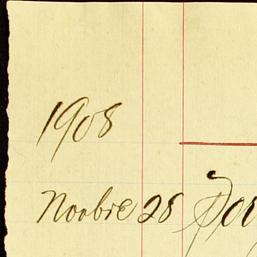 1908
Novbre 28 Por